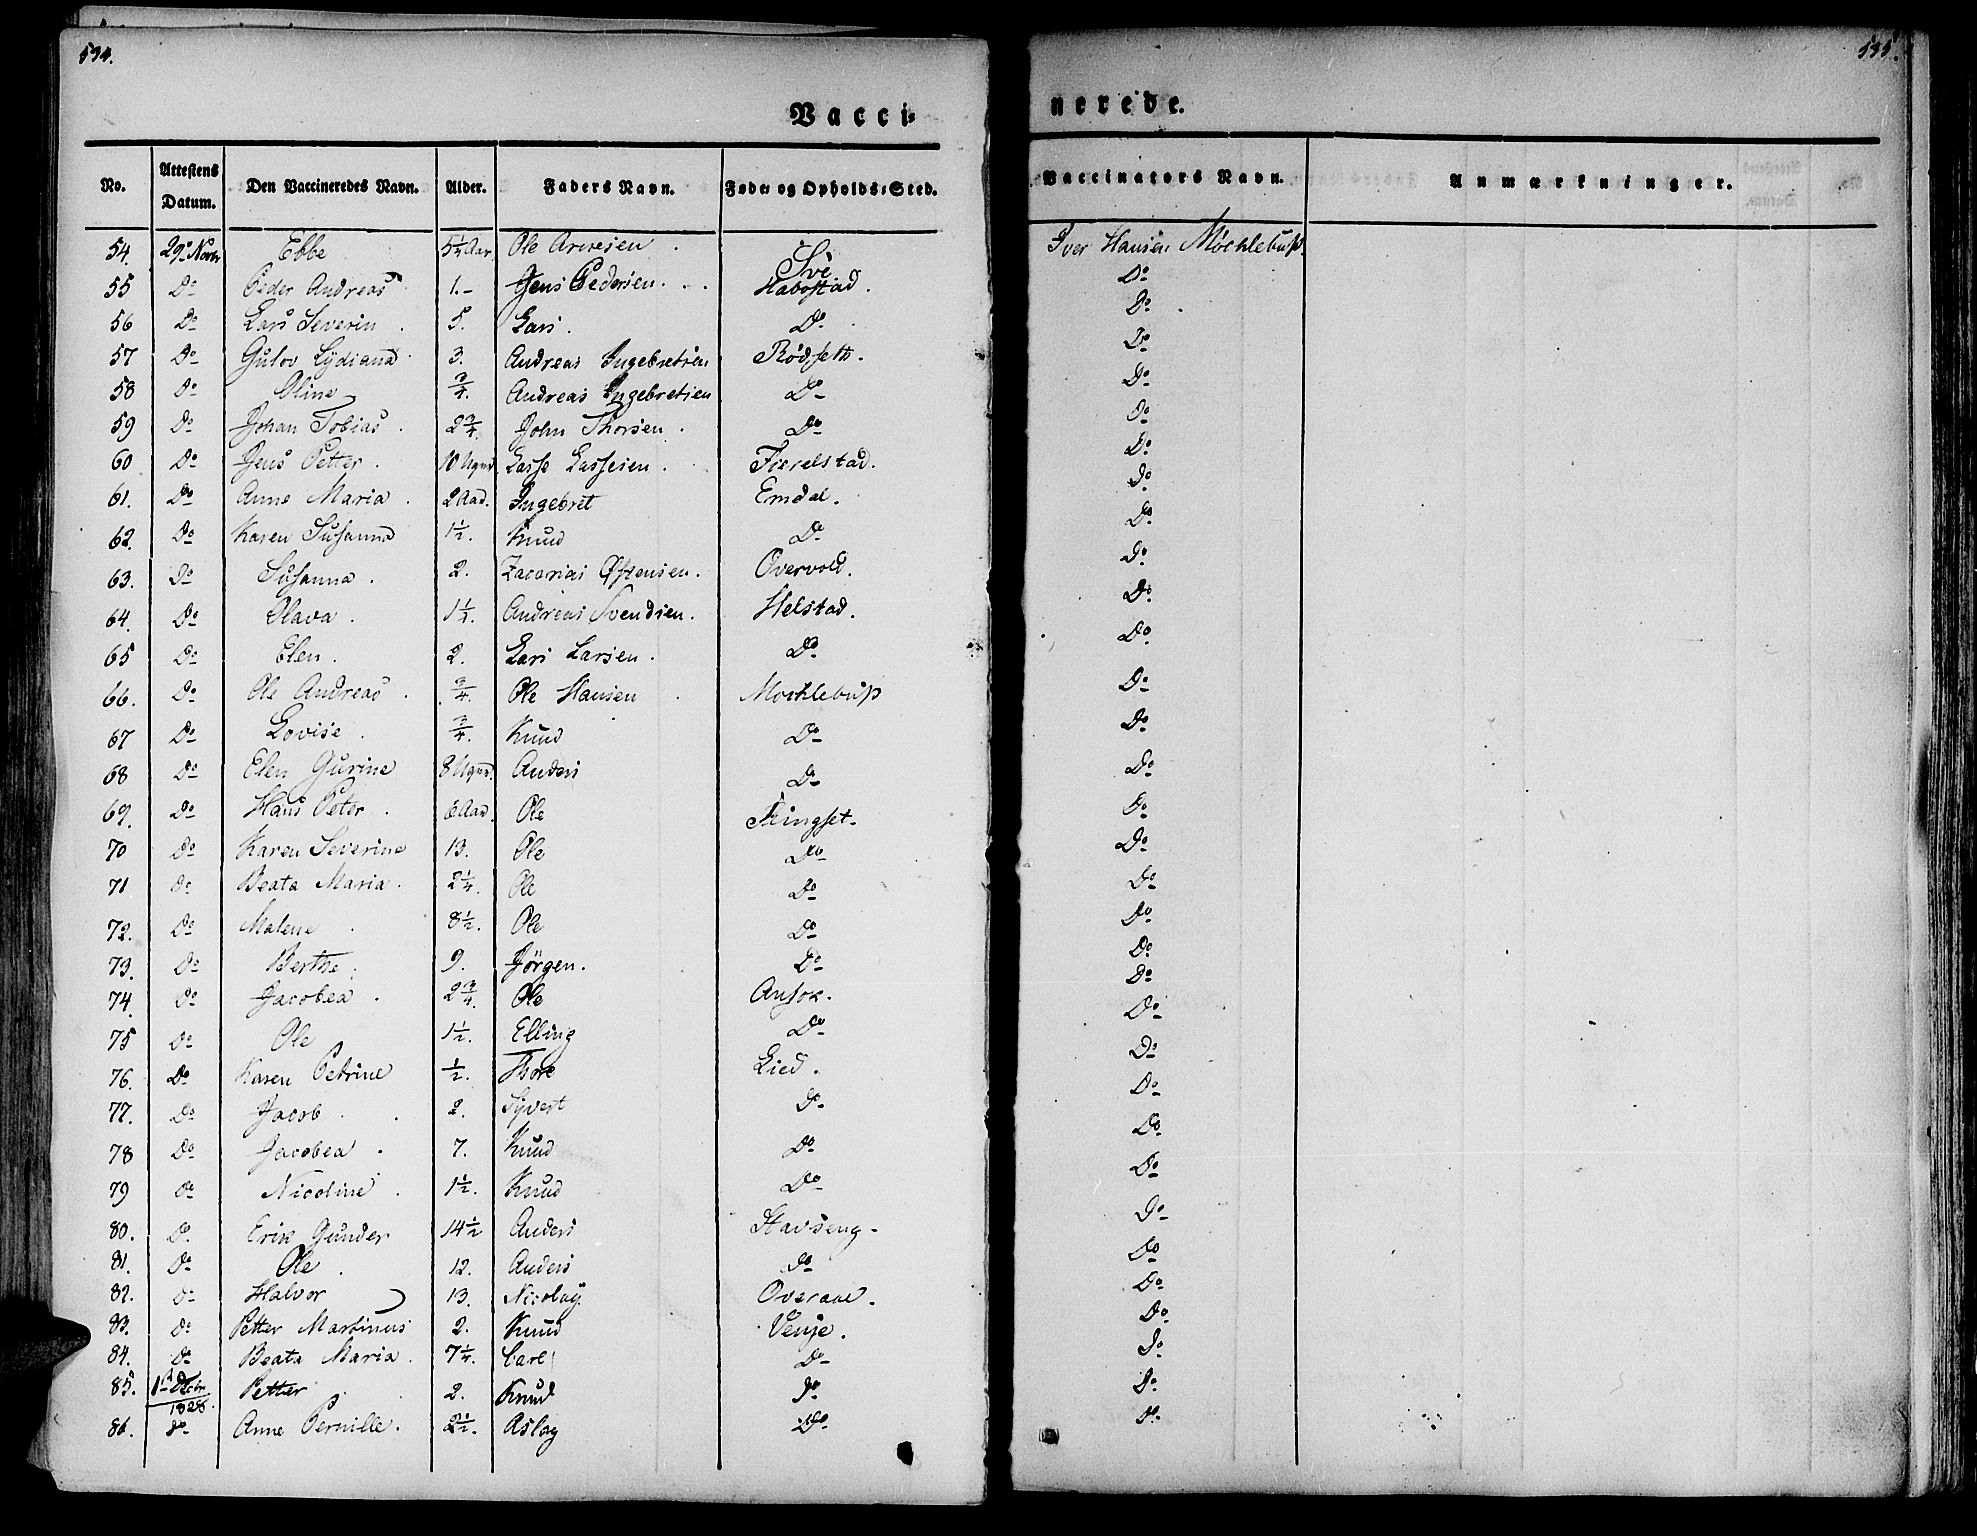 534.
535.
Vacci-
nerede.
No. Attestens Datum. Den Vaccineredes Navn. Alder. Faders Navn. Føde- og Opholds-Sted. Vaccinators Navn. Anmærkninger.
54. 29de Novbr Ebbe 5 1/4 Aar Ole Arnesen. Sve Iver Hansen Mòchlebusþ.
55 Do Peder Andreas 1.- Jens Pedersen. Habostad. Do
56 Do Lars Severin. 5. Lars. Do Do.
57 Do Gulov Lydiana 3. Andreas Ingebretsen Rødseth. Do
58 Do Oline 3/4. Andreas Ingebretsen Do Do
59 Do Johan Tobias. 2 3/4. John Thorsen. Do Do
60 Do Jens Petter. 10 Ugur Lasse Lassesen. Fierelstad. Do
61. Do Anne Maria. 2 Aar. Ingebret Emdal. Do
62. Do Karen Susanna 1 1/2. Knud Do Do
63. Do Susanna. 2. Zacarias Østensen. Overvold. Do
64. Do Olava. 1 1/2. Andreas Svendsen. Helstad. Do
65 Do Elen. 2. Lars Larsen. Do Do
66. Do Ole Andreas. 3/4. Ole Hansen Mochlebusþ Do
67 Do Lovise. 3/4. Knud Do Do
68 Do Elen Gurine 8 Ugur. Anders Do Do
69. Do Hans Peter. 6 Aar. Ole Do
70 Do Karen Severine 13. Ole Do Do
71 Do Beata Maria. 2 1/4. Ole Do Do
72. Do Malene 8 1/2. Ole Do Do
73. Do Berthe. 9. Jörgen. Do Do
74. Do Jacobea. 2 3/4. Ole Ansok. Do
75 Do Ole 1 1/2. Elling Do Do
76. Do Karen Petrine 1/2. Thore Lied. Do
77. Do Jacob. 2. Syvert Do Do
78 Do Jacobea. 7. Knud Do Do
79 Do Nicoline. 1 1/2. Knud Do Do
80. Do Erik Gunder 14 1/2 Anders Stavseng. Do
81. Do Ole. 12. Anders Do Do
82. Do Halvor 13. Nicolay Overaae. Do
83. Do Petter Martinus 2. Knud Venje. Do
84. Do Beata Maria. 7 1/4. Carl Do Do
85. 1- Decbr 1828. Petter 2. Knud Do Do
86. Do Anne Pernille. 2 1/2. Aslag Do Do